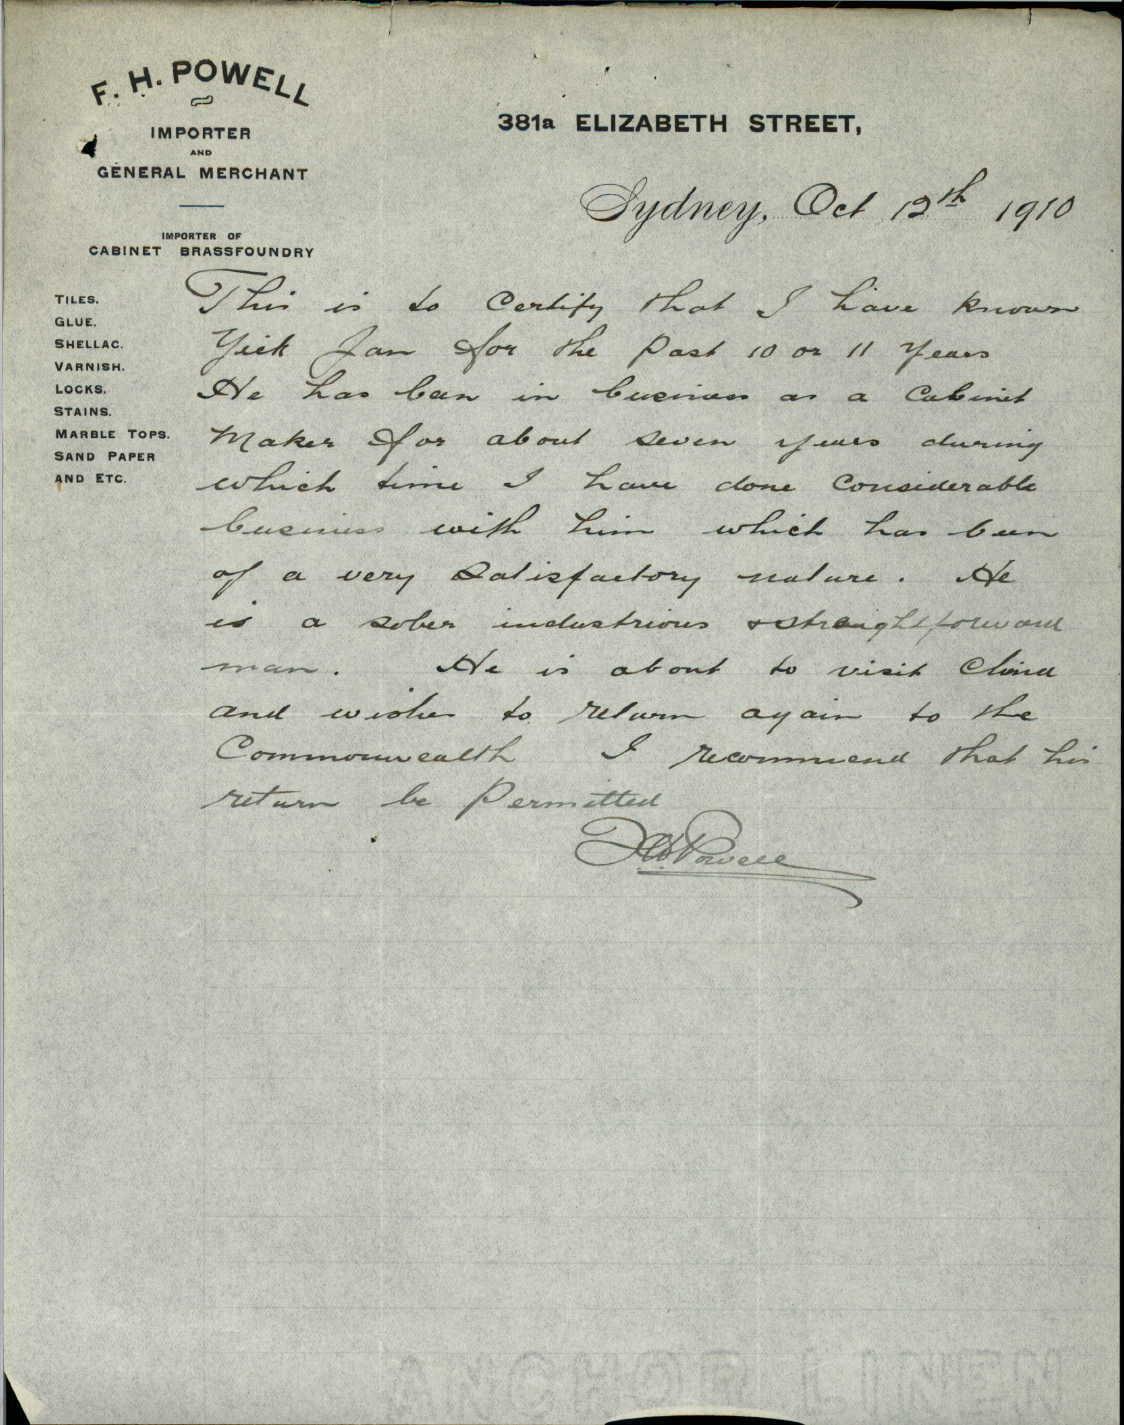 F. H. POWELL
IMPORTER
AND
GENERAL MERCHANT
IMPORTER OF
CABINET BRASSFOUNDRY
TILES.
GLUE.
SHELLAC.
VARNISH.
LOCKS.
STAINS.
MARBLE TOPS.
SAND PAPER
AND ETC.
381a ELIZABETH STREET,
Sydney, Oct 12th 1910
This is to Certify that I have known
Yick Jan for the past 10 or 11 years
He has been in business as a Cabinet
Maker for about seven years during
which time I have done Considerable
business with him which has been
of a very Satisfactory nature. He
is a sober industrious & straightforward
man. He is about to visit China
and wishes to return again to the
Commonwealth I recommend that his
return be Permitted
F H Powell
ANCHOR LINEN